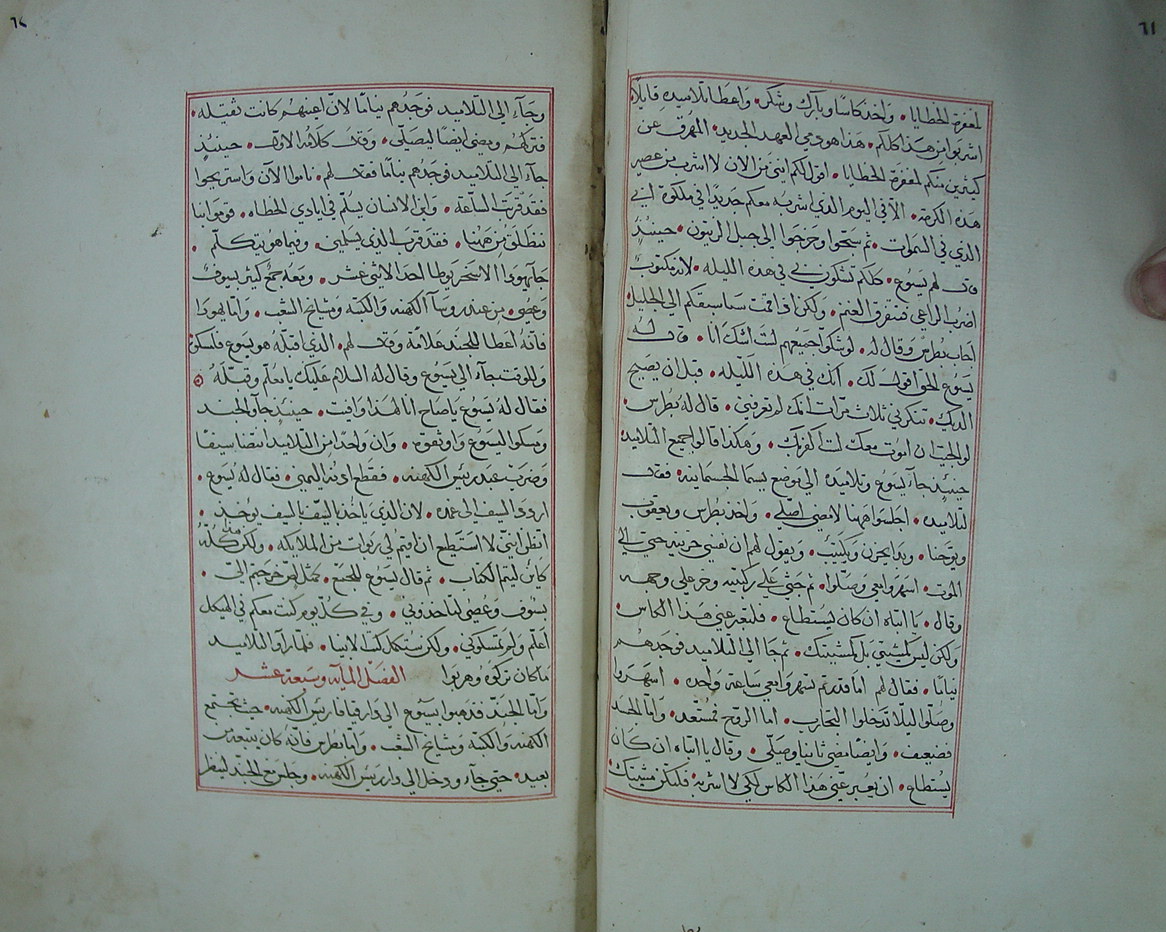 ٦١
لمغفرة الخطايا • واخذ كاسا وبارك وشكر • واعطا تلاميذه قايلا
اشربوا من هذا كلكم • هذا هو دمي العهد الجديد • المهرق عن
كثيرين منكم لمغفرة الخطايا • اقول لكم انني من الان لا اشرب من عصير
هذه الكرمة • الا في اليوم الدي اشربه معكم جديدا في ملكوة ابي
الذي في السموات • ثم سبحوا وخرجوا الى جبل الزيتون • حينيذ
قال لهم يسوع • كلكم تشكون في في هذه الليله • لانه مكتوب
اضرب الراعي فتتفرق الغنم • ولكن اذا قمت سا سبقكم الى الجليل
اجاب بطرس وقال له • لو شكوا جميعهم لست اشك انا • قال له
يسوع الحق اقول لك • انك في هذه الليله • قبل ان يصيح
الديك • تنكرني ثلاث مرات انك لم تعرفني • قال له بطرس •
لو الجيت ان اموت معك لست اكفر بك • وهكذا قالوا جميع التلاميد
حينيد جاء يسوع وتلاميده الى موضع يسما الجسمانيه • فقال
لتلاميده • اجلسوا ههنا لامضي اصلي • واخد بطرس ويعقوب
ويوحنا • وبدا يحزن ويكتيب • ويقول لهم ان نفسي حزينه حتى الى
الموت • اسهروا معي وصلوا • ثم جثي على ركبتيه وخر على وجهه
وقال • يا ابتاه ان كان يستطاع • فلتعبر عني هذا الكاس •
ولكن ليس كمشيتي بل كمشيتك • ثم جا الى التلاميد فوجدهم
نياما • فقال لهم اما قدرتم تسهروا معي ساعة واحده • اسهروا
وصلوا ليلا تدخلوا التجارب • اما الروح فمستعد • واما الجسد
فضعيف • وايضا مضي ثانيا وصلي • وقال يا ابتاه ان كان
يستطاع • ان يعبر عني هذا الكاس لكي لا اشربه • فلتكن مشيتك
٦٢
وجاء الى التلاميد فوجدهم نياما لان اعينهم كانت ثقيله •
فتركهم ومضى ايضا ليصلي • وقال كلامه الاول • حينيذ
جاء الى التلاميد فوجدهم نياما فقال لهم • ناموا الان واستريحوا
فقد قربت الساعة • وابن الانسان يسلم في ايادي الخطاه • قوموا بنا
ننطلق من ههنا • فقد قرب الدي يسلمني • وبما هو يتكلم •
جا يهودا الاسخريوطا احد الاثني عشر • ومعه جمع كثير بسيوف
وعصي • من عند روسا الكهنه والكتبه ومشايخ الشعب • واما يهودا
فانه اعطا للجند علامه وقال لهم • الدي اقبله هو يسوع فامسكوه
وللوقت جاء الى يسوع وقال له السلام عليك يا معلم وقبله
فقال له يسوع يا صاح الهذا وافيت • حينيد جاو الجند
ومسكوا ليسوع واوثقوه • وان واحدا من التلاميد انتضا سيفا
وضرب عبد ريس الكهنه • فقطع ادنه اليمين • فقال له يسوع •
اردد السيف الى غمده • لان الدي ياخد بالسيف بالسيف يوخد •
اتظن انني لا استطيع ان اقيم لي ربوات من الملايكه • ولكن هذا كله
كاين ليتم الكتاب • ثم قال يسوع للجمع • كمثل لص خرجتم الي •
بسيوف وعصي لتاخدوني • وفي كل يوم كنت معكم في الهيكل
اعلم ولم تمسكوني • ولكن ستكمل كتب الانبيا • فلما راو التلاميد
ما كان تركوه وهربوا الفصل الميايه وسبعة عشر
واما الجند فدهبوا بيسوع الى دار قيافا ريس الكهنه • حيث تجتمع
الكهنه والكتبه ومشايخ الشعب • واما بطرس فانه كان يتبعه من
بعيد • حتى جاء ودخل الى دار ريس الكهنه • وجلس مع الجند لينظر